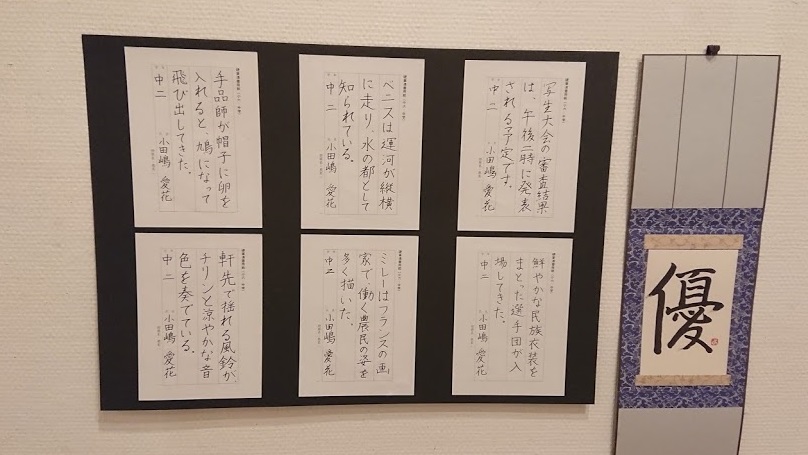 写生大会の審査結果
は、午後二時に発表
される予定です。
中二
小田嶋 愛花
ベニスは運河が縦横
に走り、水の都として
知られている。
中二
小田嶋 愛花
手品師が帽子に卵を
入れると、鳩になって
飛び出してきた。
中二
小田嶋 愛花
鮮やかな民族衣装を
まとった選手団が入
場してきた。
中二
小田嶋 愛花
ミレーはフランスの画
家で、働く農民の姿を
多く描いた。
中二
小田嶋 愛花
軒先で揺れる風鈴が、
チリンと涼やかな音
色を奏でている。
中二
小田嶋 愛花
優